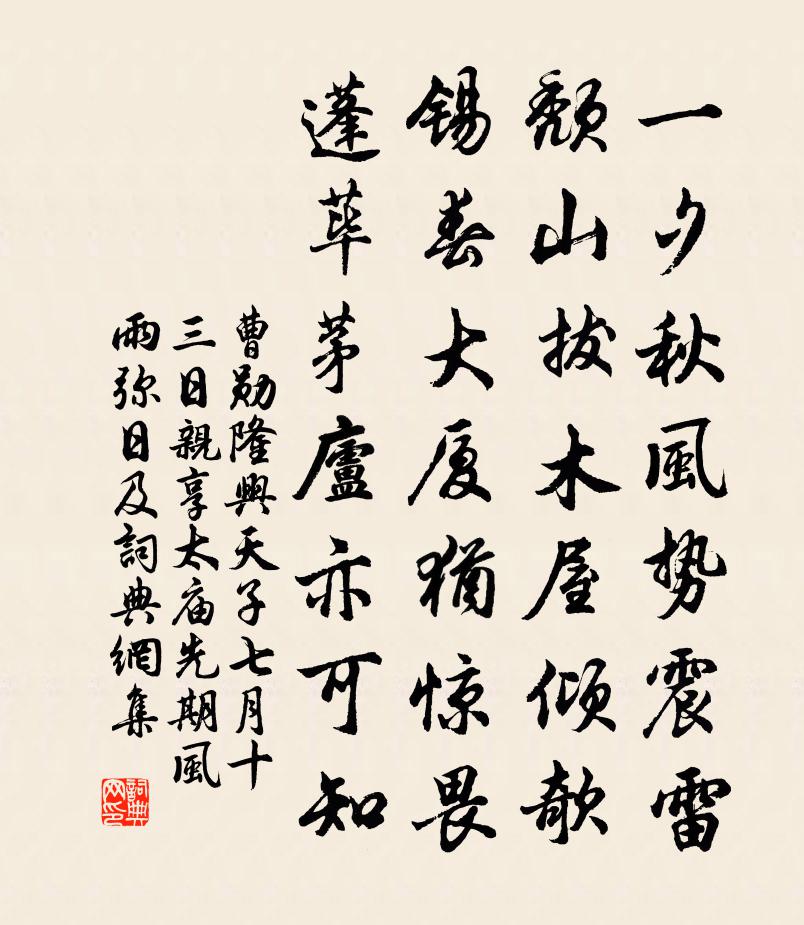 一夕秋風势震雷
頹山拔木屋傾欹
錫春大厦猶惊畏
蓬蓽茅廬亦可知
曹勋隆興天子七月十
三日親享太庙先期風
雨弥日及詞典網集
詞典网印